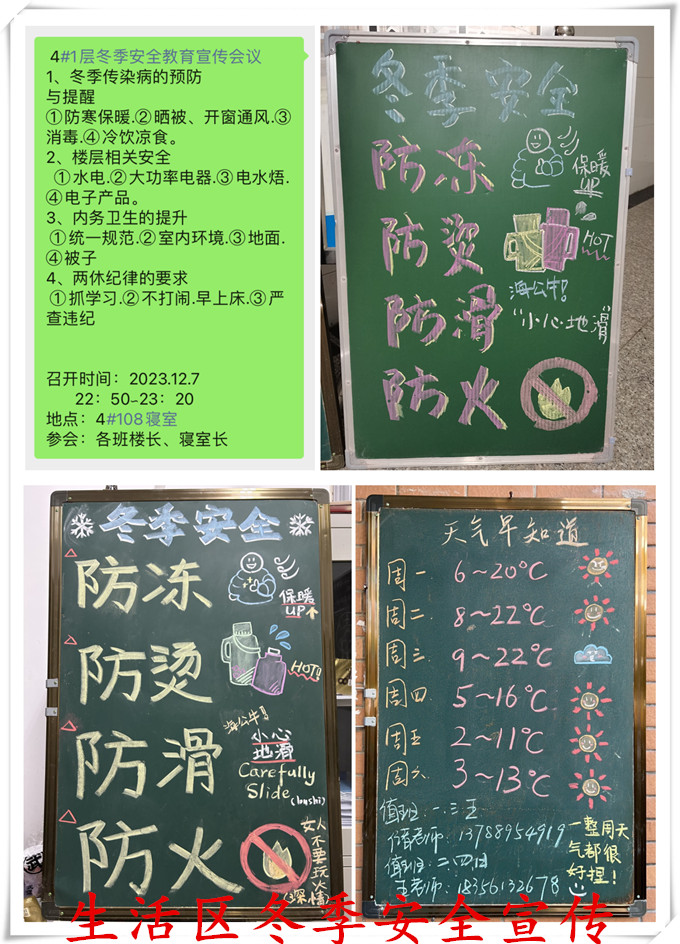 4#1层冬季安全教育宣传会议
1、冬季传染病的预防
与提醒
①防寒保暖.②晒被、开窗通风.③
消毒.④冷饮凉食。
2、楼层相关安全
①水电.②大功率电器.③电水焐.
④电子产品。
3、内务卫生的提升
①统一规范.②室内环境.③地面.
④被子
4、两休纪律的要求
①抓学习.②不打闹.早上床.③严
查违纪
召开时间：2023.12.7
22：50-23：20
地点：4#108寝室
参会：各班楼长、寝室长
冬季安全
防冻
保暖
UP
防烫
HOT
海公牛!
防滑
"小心地滑"
防火
冬季安全
防冻
保暖
UP
防烫
HOT!
海公牛!
防滑
小心
地滑
Carefully
Slide
(bushi)
防火
女人
不要玩
火
(深情)
天气早知道
周一 6~20°C
周二 8~22°C
周三 9~22°C
周四 5~16°C
周五 2~11°C
周六 3~13°C
值班:一.三.五
老师: 13788954919
值班:二.四.日
王老师: 18356132678
一整周天
气都很
好捏!
生活区冬季安全宣传